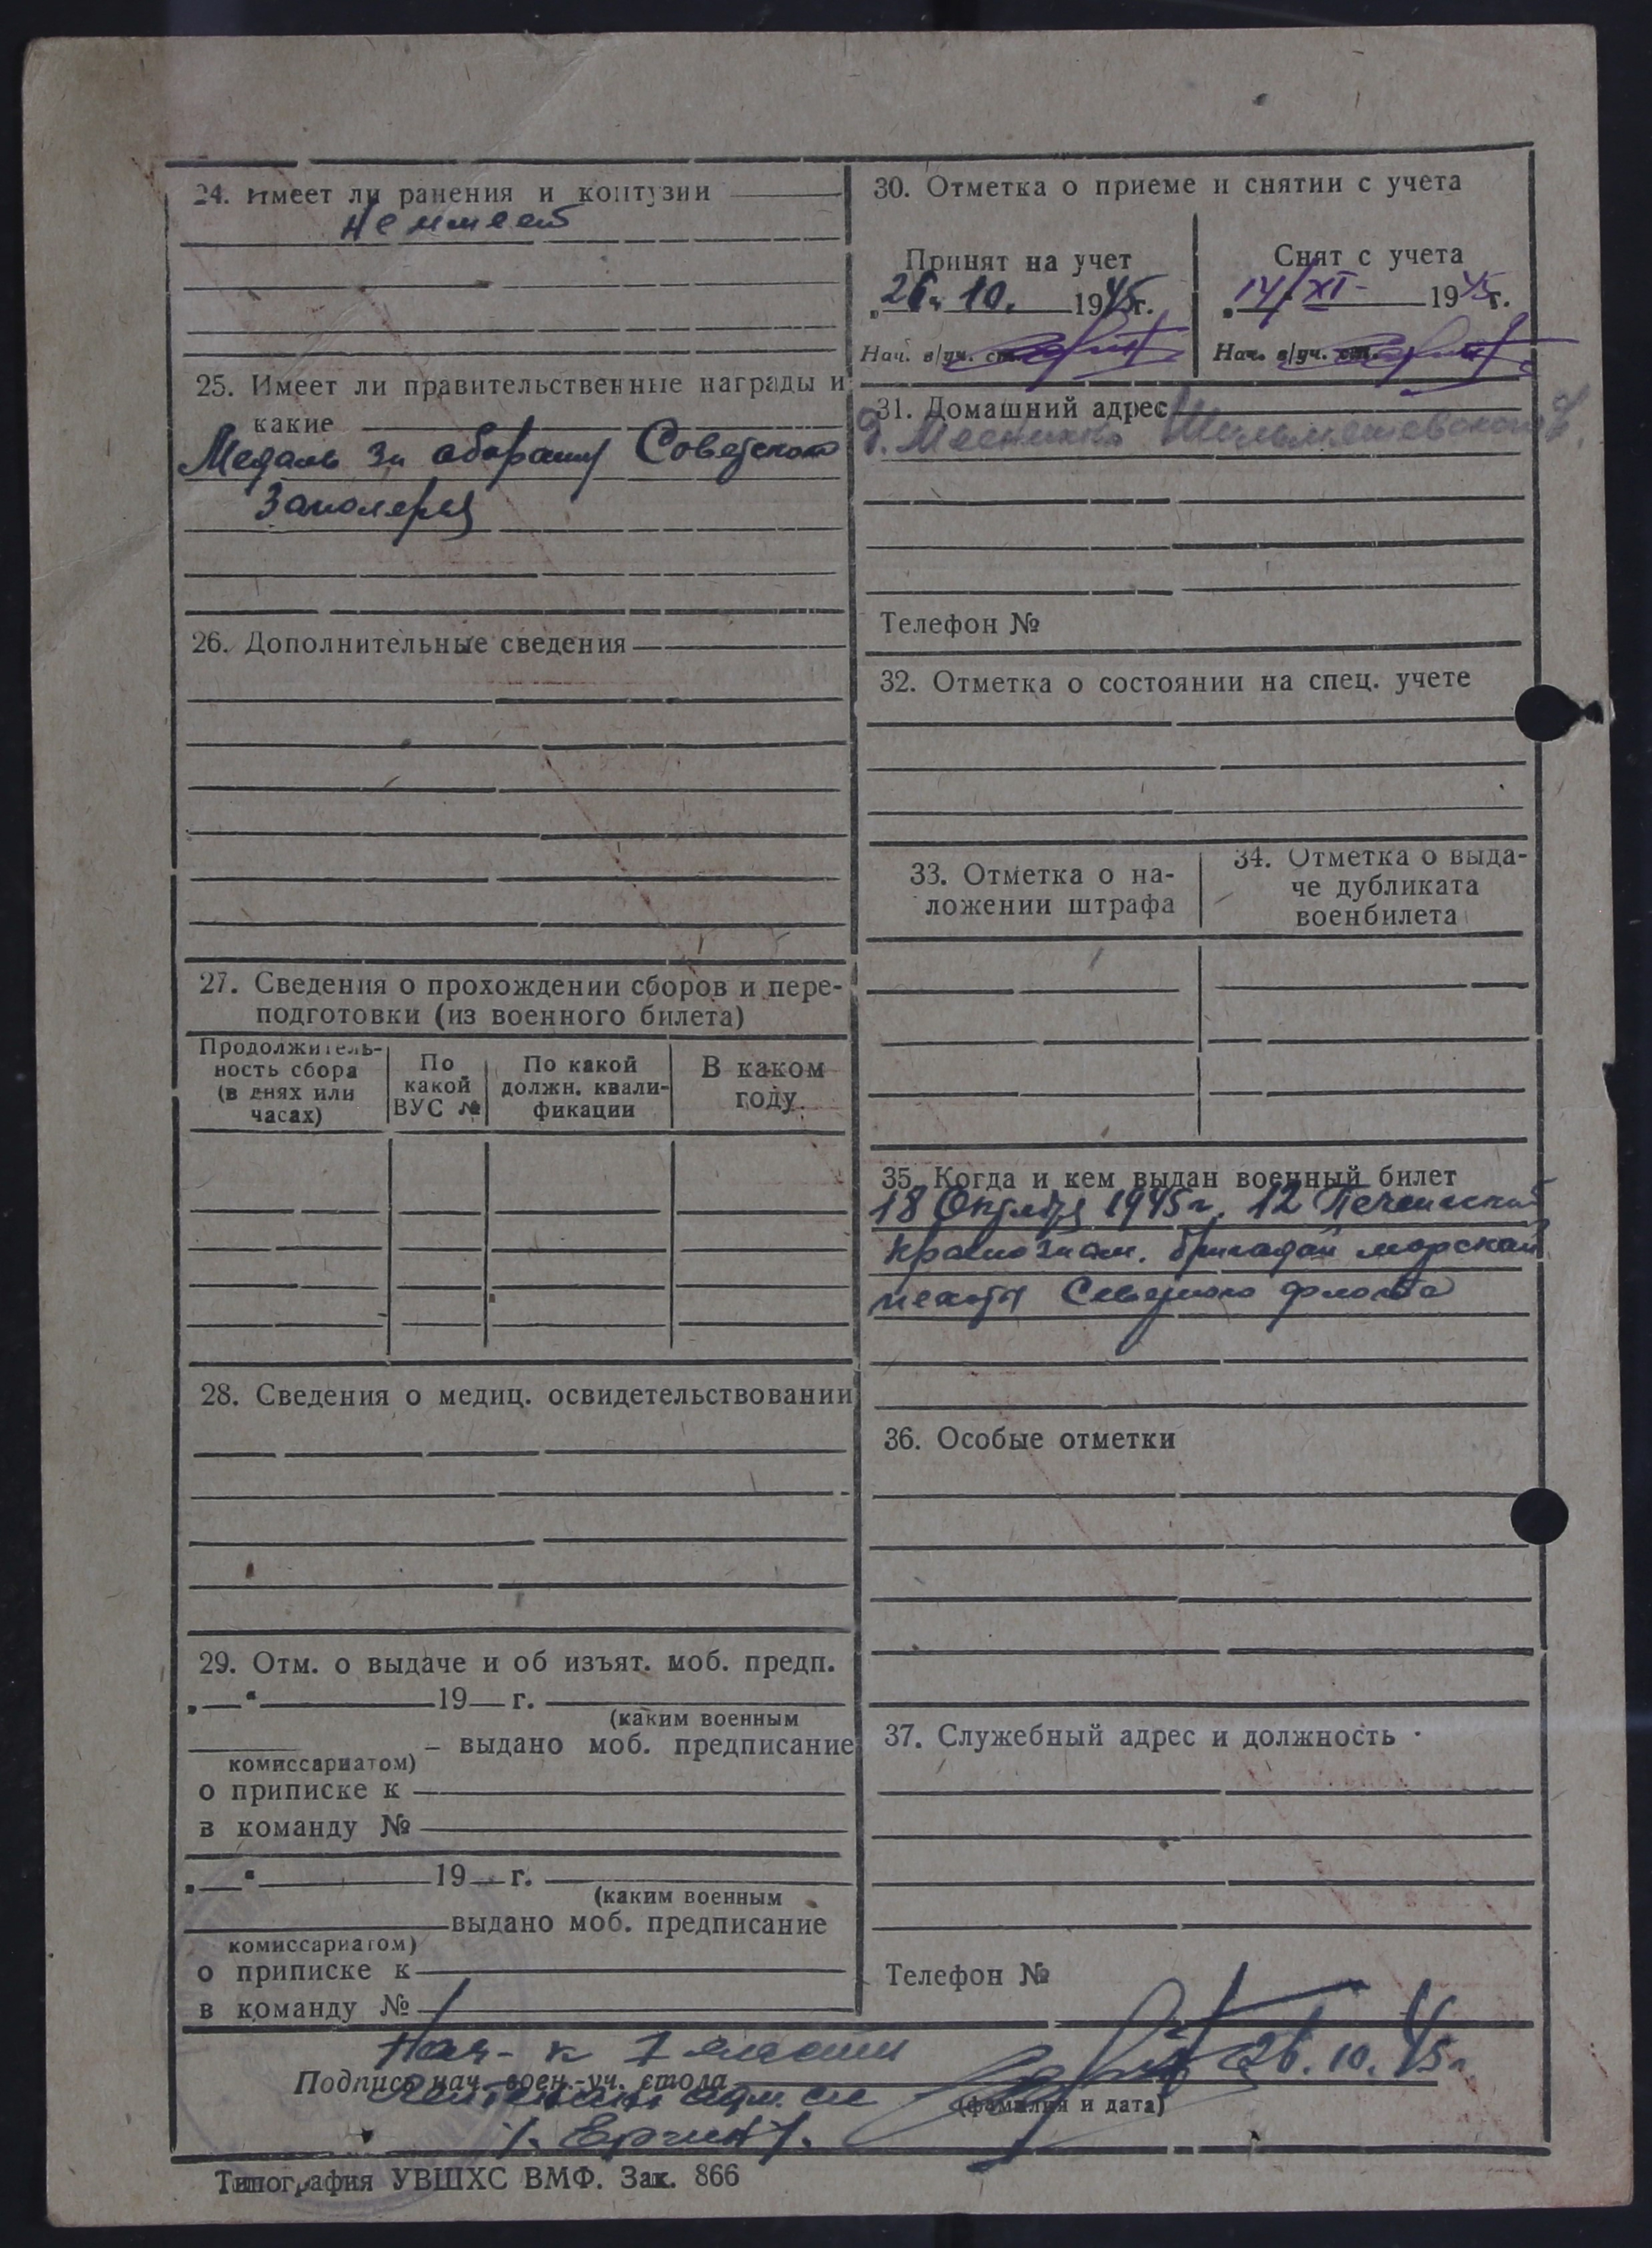 24. Имеет ли ранения и контузии
Не имеет
25. Имеет ли правительственные награды и
какие
Медаль за оборону Советского
Заполярья
26. Дополнительные сведения
27. Сведения о прохождении сборов и пере-
подготовки (из военного билета)
Продолжитель-
ность сбора
(в днях или
часах)
По
какой
ВУС №
По какой
должн. квали-
фикации
В каком
году
28. Сведения о медиц. освидетельствовании
29. Отм. о выдаче и об изъят. моб. предп.
„ “ 19 г.
(каким военным
– выдано моб. предписание
комиссариатом)
о приписке к
в команду №
„ “ 19 г.
(каким военным
выдано моб. предписание
комиссариатом)
о приписке к
в команду №
30. Отметка о приеме и снятии с учета
Принят на учет
26. 10. 1945г.
Нач. в/уч. ст.
Снят с учета
14/XI- 1945г.
Нач. в/уч. ст.
31. Домашний адрес
Телефон №
32. Отметка о состоянии на спец. учете
33. Отметка о на-
ложении штрафа
34. Отметка о выда-
че дубликата
военбилета
35. Когда и кем выдан военный билет
18 Октября 1945г. 12 Печенгской
краснознам. бригадой морской
пехоты Северного флота
36. Особые отметки
37. Служебный адрес и должность
Телефон №
Нач-к 1 части
Подпись нач. воен.-уч. стола
26.10.45г.
Лейтенант адм. сл.
(фамилия и дата)
Типография УВШХС ВМФ. Зак. 866